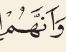 وَأَنَّهُمْ